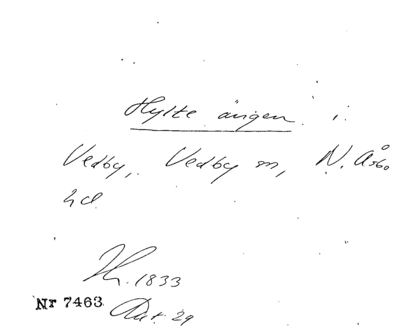 Hylte ängen i
Vedby, Vedby sn, N. Åsbo
hd
1833
Nr 7463 Akt. 29